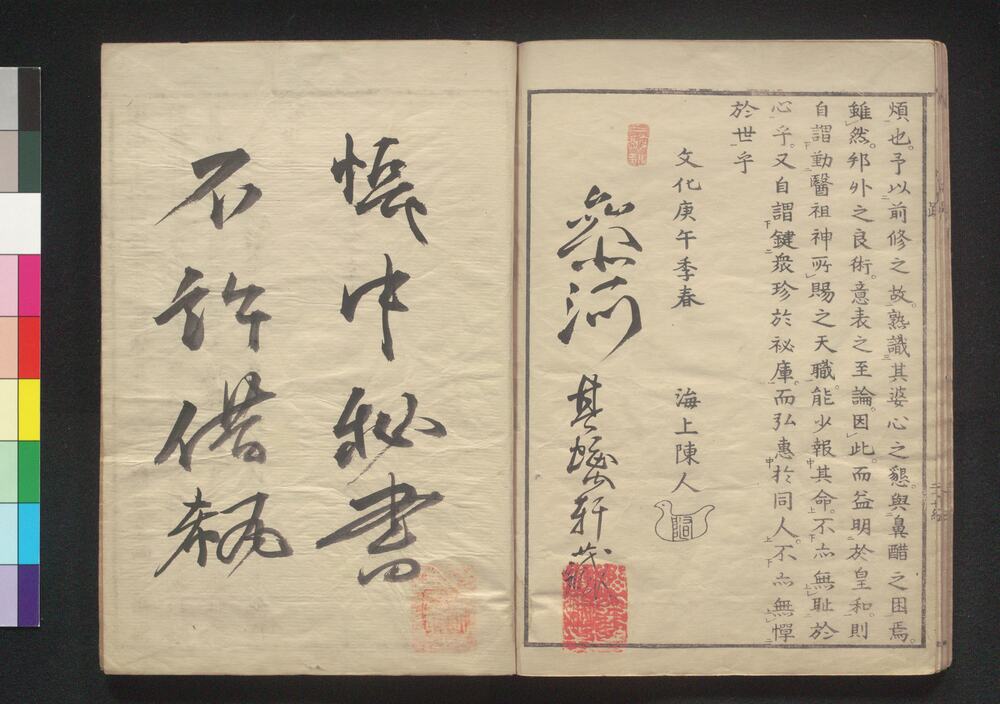 煩也。予以前修之故。熟識其婆心之懇。與鼻醋之困焉。
雖然。邦外之良術。意表之至論。因此。而益明於皇和。則
自謂勤醫祖神所賜之天職。能少報其命。不亦無恥於
心乎。又自謂鍵衆珍於祕庫。而弘惠於同人。不亦無憚
於世乎
文化庚午季春 海上陳人
軒藏
帳中秘書
不許借